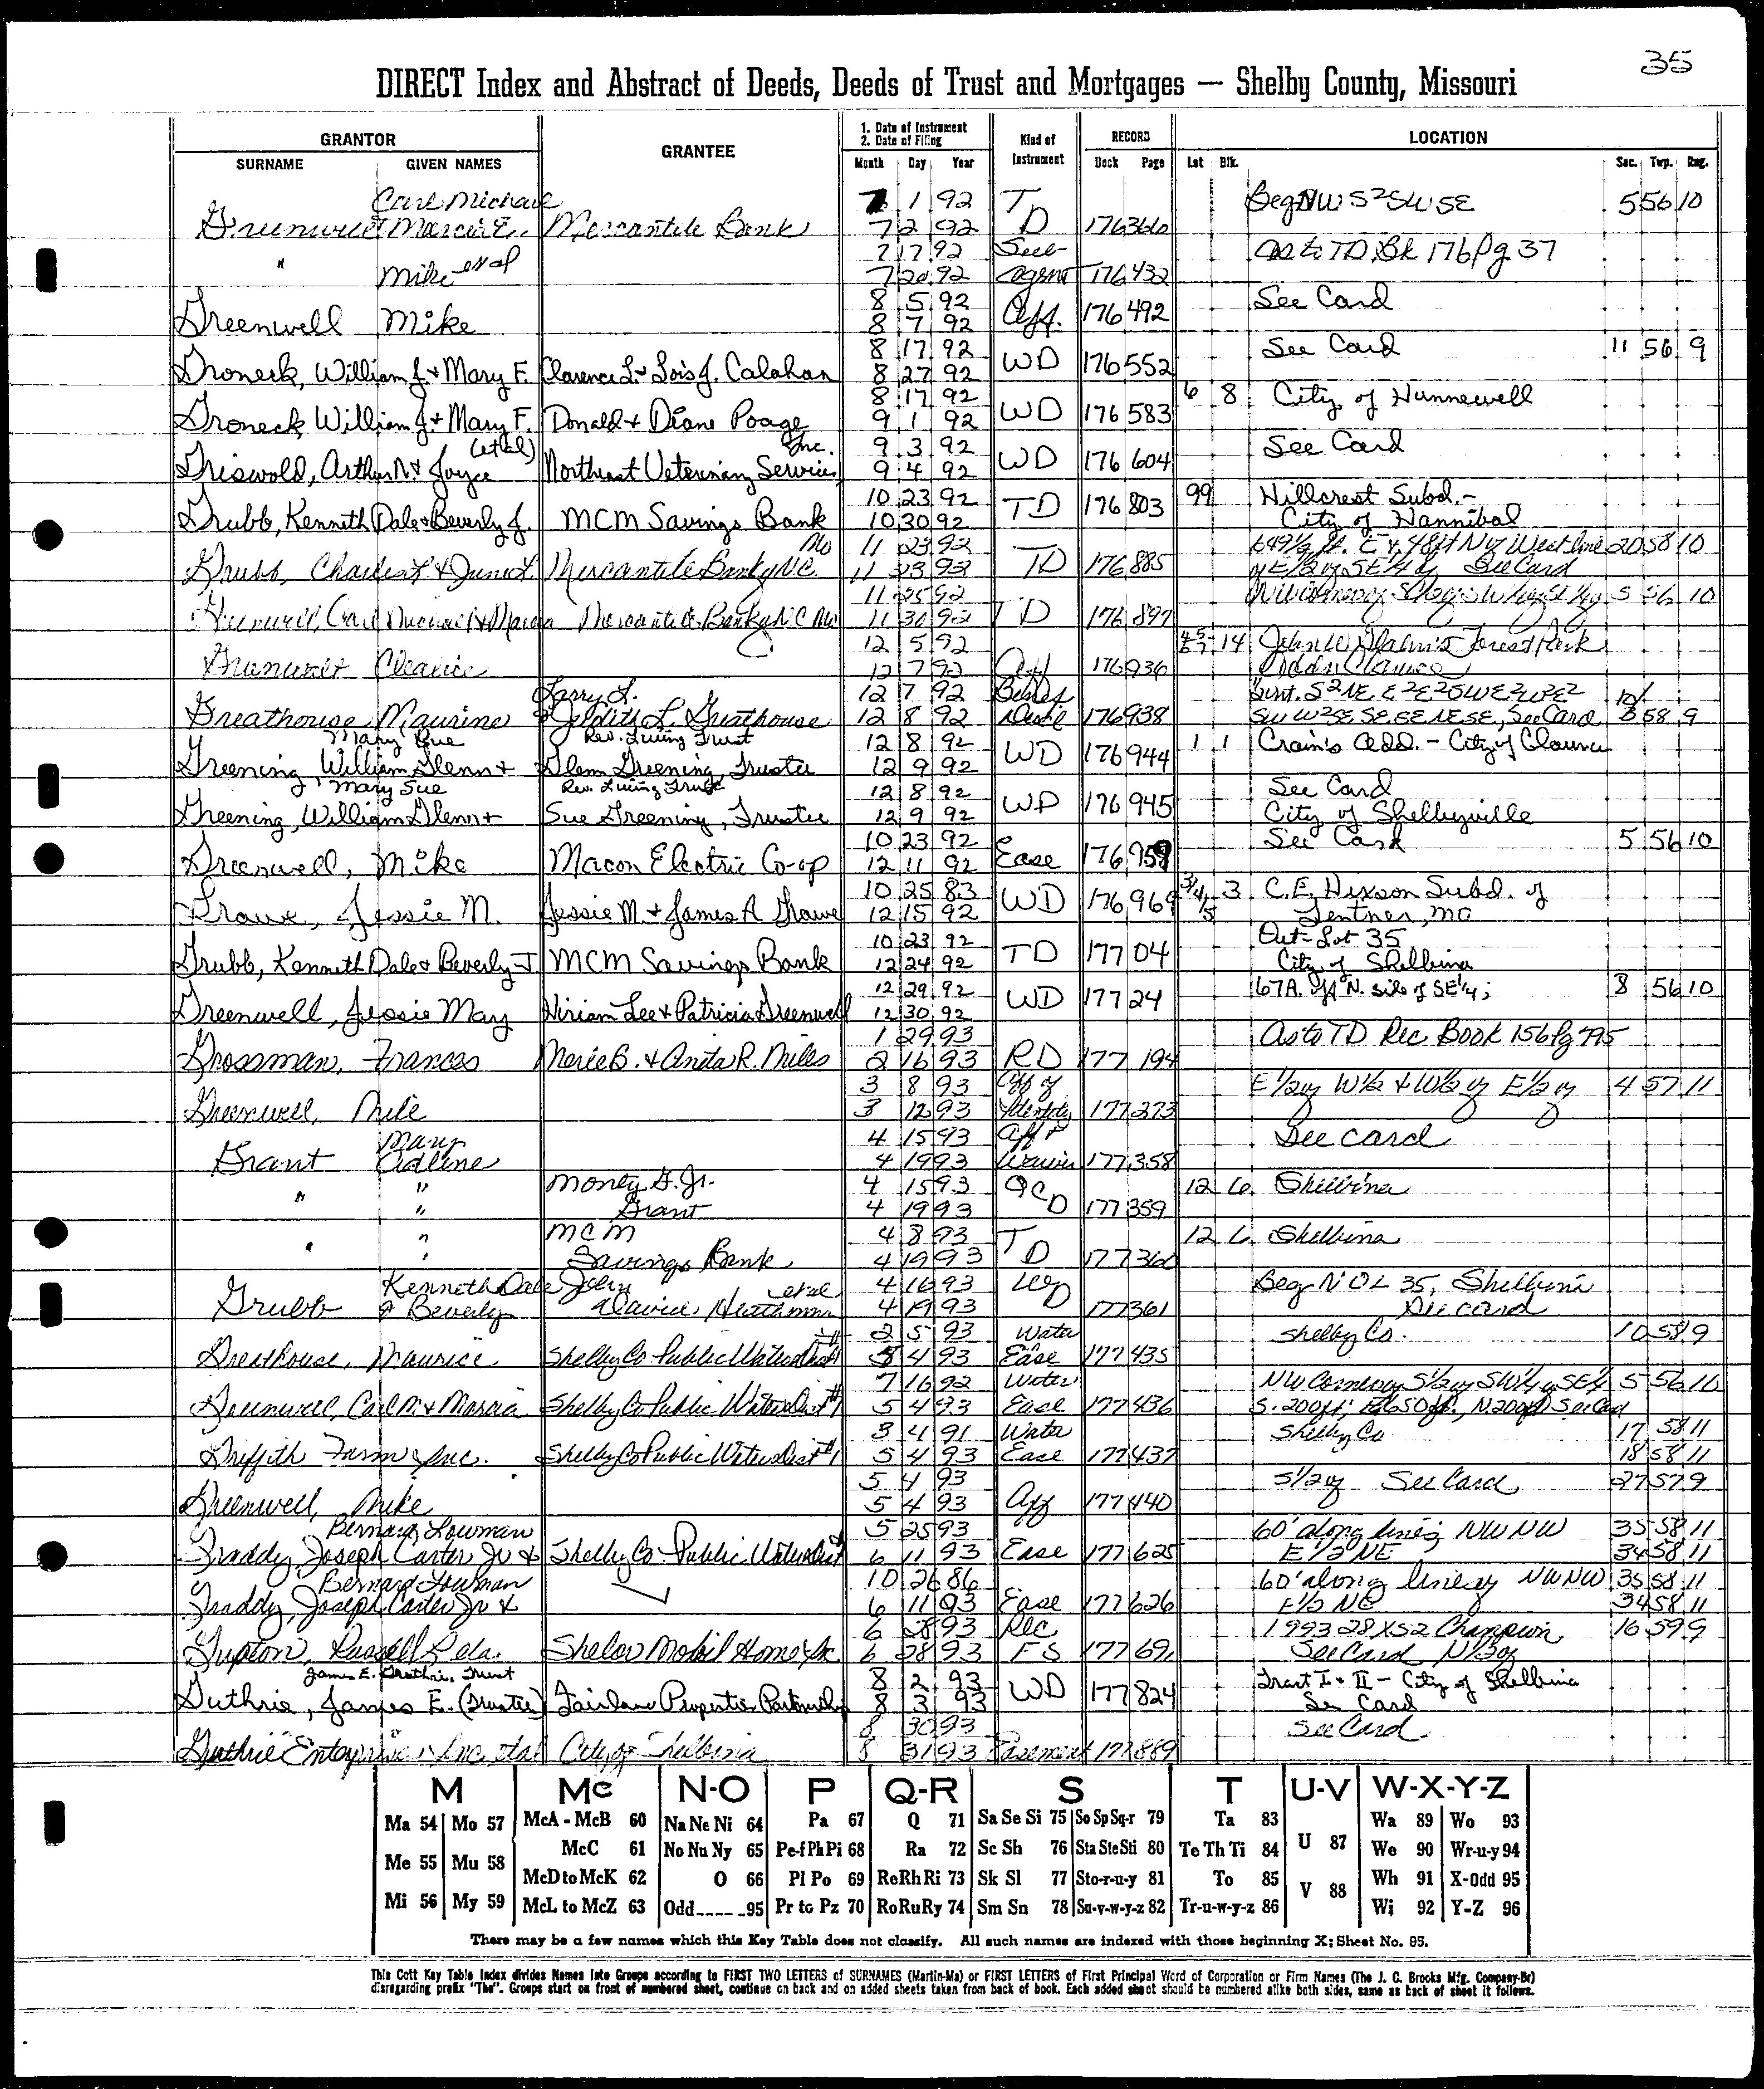 35
DIRECT Index and Abstract of Deeds, Deeds of Trust and Mortgages — Shelby County, Missouri
GRANTOR GRANTEE 1. Date of Instrument 2. Date of Filing Kind of Instrument RECORD LOCATION
SURNAME GIVEN NAMES Month Day Year Book Page Lot Blk. Sec. Twp. Rng.
Carl Michael 7 1 92 T Beg NW S² SW SE 5 56 10
Greenwell Marcia E. Mercantile Bank 7 2 92 D 176 366
7 17 92 Sub as to TD Bk 176 Pg 37
" Mike et al 7 20 92 Agmt 176 432
8 5 92 See Card
Greenwell Mike 8 7 92 Aff. 176 492
8 17 92 See Card 11 56 9
Groneck, William J. & Mary F. Clarence L. & Lois J. Calahan 8 27 92 WD 176 552
8 17 92 6 8 City of Hunnewell
Groneck William J. & Mary F. Donald & Diane Poage 9 1 92 WD 176 583
(et al) Inc. 9 3 92 See Card
Griswold, Arthur N. & Joyce Northeast Veterinary Services 9 4 92 WD 176 604
10 23 92 99 Hillcrest Subd. -
Grubb, Kenneth Dale & Beverly J. MCM Savings Bank 10 30 92 TD 176 803 City of Hannibal
Mo 11 23 92 649½ ft. E & 48 ft N of West line 20 58 10
Grubb, Charles L & June L Mercantile Bank of N.C. 11 23 92 TD 176 885 of E½ of SE¼ of See Card
11 25 92 5 56 10
Greenwell, Carl Michael & Marcia Mercantile Bank of N.C. Mo 11 30 92 TD 176 897
12 5 92 14 Forest Park
Clarice 12 7 92 Aff 176 936 Addn Clarence
Larry L. 12 7 92 Benes S² NE E² E² SW E² W² E² 10
Greathouse Maurine & Judith L. Greathouse 12 8 92 Deed 176 938 SW W² SE SE SE NE SE, See Card 3 58 9
Mary Sue Rev. Living Trust 12 8 92 1 1 Crain's Add. - City of Clarence
Greening, William Glenn & Glenn Greening, Trustee 12 9 92 WD 176 944
Mary Sue Rev. Living Trust 12 8 92 See Card
Greening, William Glenn & Sue Greening, Trustee 12 9 92 WD 176 945 City of Shelbyville
10 23 92 See Card 5 56 10
Greenwell, Mike Macon Electric Co-op 12 11 92 Ease 176 959
10 25 83 3/4/5 3 C.E. Hixson Subd. of
Growe, Jessie M. Jessie M. & James A Growe 12 15 92 WD 176 969 Lentner, MO
10 23 92 Out-Lot 35
Grubb, Kenneth Dale & Beverly J MCM Savings Bank 12 24 92 TD 177 04 City of Shelbina
12 29 92 67A. off N. side of SE¼; 8 56 10
Greenwell, Jessie Mary Hiriam Lee & Patricia Greenwell 12 30 92 WD 177 24
1 29 93 As to TD Rec. Book 156 Pg 795
Grossman, Frances Merle B. & Anita R. Miles 2 16 93 RD 177 194
3 8 93 Aff of E½ of W½ & W½ of E½ of 4 57 11
Greenwell, Mike 3 12 93 Identity 177 273
Mary 4 15 93 Aff & See Card
Grant Adline 4 19 93 Waiver 177 358
" " Monty G. Jr. 4 15 93 QC 12 6 Shelbina
" Grant 4 19 93 D 177 359
" MCM 4 8 93 T 12 6 Shelbina
" " Savings Bank 4 19 93 D 177 360
Kenneth Dale John et al 4 16 93 W Beg N OL 35, Shelbina
Grubb & Beverly David Heathman 4 19 93 D 177 361 See Card
2 5 93 Water Shelby Co. 10 58 9
Greathouse, Maurice Shelby Co Public Water Dist #1 5 4 93 Ease 177 435
7 16 92 Water NW Corner of S½ of SW¼ of SE¼ 5 56 10
Greenwell, Carl M. & Marcia Shelby Co Public Water Dist #1 5 4 93 Ease 177 436 S. 200 ft; E 650 ft., N. 200 ft See Card
3 4 91 Water Shelby Co 17 58 11
Griffith Farm Inc. Shelby Co Public Water Dist #1 5 4 93 Ease 177 437 18 58 11
5 4 93 S½ of See Card 27 57 9
Greenwell, Mike 5 4 93 Aff 177 440
Bernard Lowman 5 25 93 60' along line of NW NW 35 58 11
Graddy, Joseph Carter Jr & Shelby Co Public Water Dist #1 6 11 93 Ease 177 625 E½ NE 34 58 11
Bernard Lowman 10 26 86 60' along line of NW NW 35 58 11
Graddy, Joseph Carter Jr & ✓ 6 11 93 Ease 177 626 E½ NE 34 58 11
6 28 93 Rec 1993 28 X 52 Champion 16 59 9
Gupton, Russell Leda Shelov Mobil Home Inc 6 28 93 FS 177 69 See Card N½ of
James E. Guthrie Trust 8 2 93 Tract I & II - City of Shelbina
Guthrie, James E. (Trustee) Fairlane Properties Partnership 8 3 93 WD 177 824 See Card
8 30 93 See Card
Guthrie Enterprises Inc et al City of Shelbina 8 31 93 Easement 177 889
M Mc N-O P Q-R S T U-V W-X-Y-Z
Ma 54 Mo 57 McA - McB 60 Na Ne Ni 64 Pa 67 Q 71 Sa Se Si 75 So Sp Sq-r 79 Ta 83 Wa 89 Wo 93
McC 61 No Nu Ny 65 Pe-f Ph Pi 68 Ra 72 Sc Sh 76 Sta Ste Sti 80 Te Th Ti 84 U 87 We 90 Wr-u-y 94
Me 55 Mu 58 McD to McK 62 O 66 Pl Po 69 Re Rh Ri 73 Sk Sl 77 Sto-r-u-y 81 To 85 V 88 Wh 91 X-Odd 95
Mi 56 My 59 McL to McZ 63 Odd---- 95 Pr to Pz 70 Ro Ru Ry 74 Sm Sn 78 Su-v-w-y-z 82 Tr-u-w-y-z 86 Wi 92 Y-Z 96
There may be a few names which this Key Table does not classify. All such names are indexed with those beginning X; Sheet No. 95.
This Cott Key Table Index divides Names into Groups according to FIRST TWO LETTERS of SURNAMES (Martin-Ma) or FIRST LETTERS of First Principal Word of Corporation or Firm Names (The J. C. Brooks Mfg. Company-Br)
disregarding prefix "The". Groups start on front of numbered sheet, continue on back and on added sheets taken from back of book. Each added sheet should be numbered alike both sides, same as back of sheet it follows.